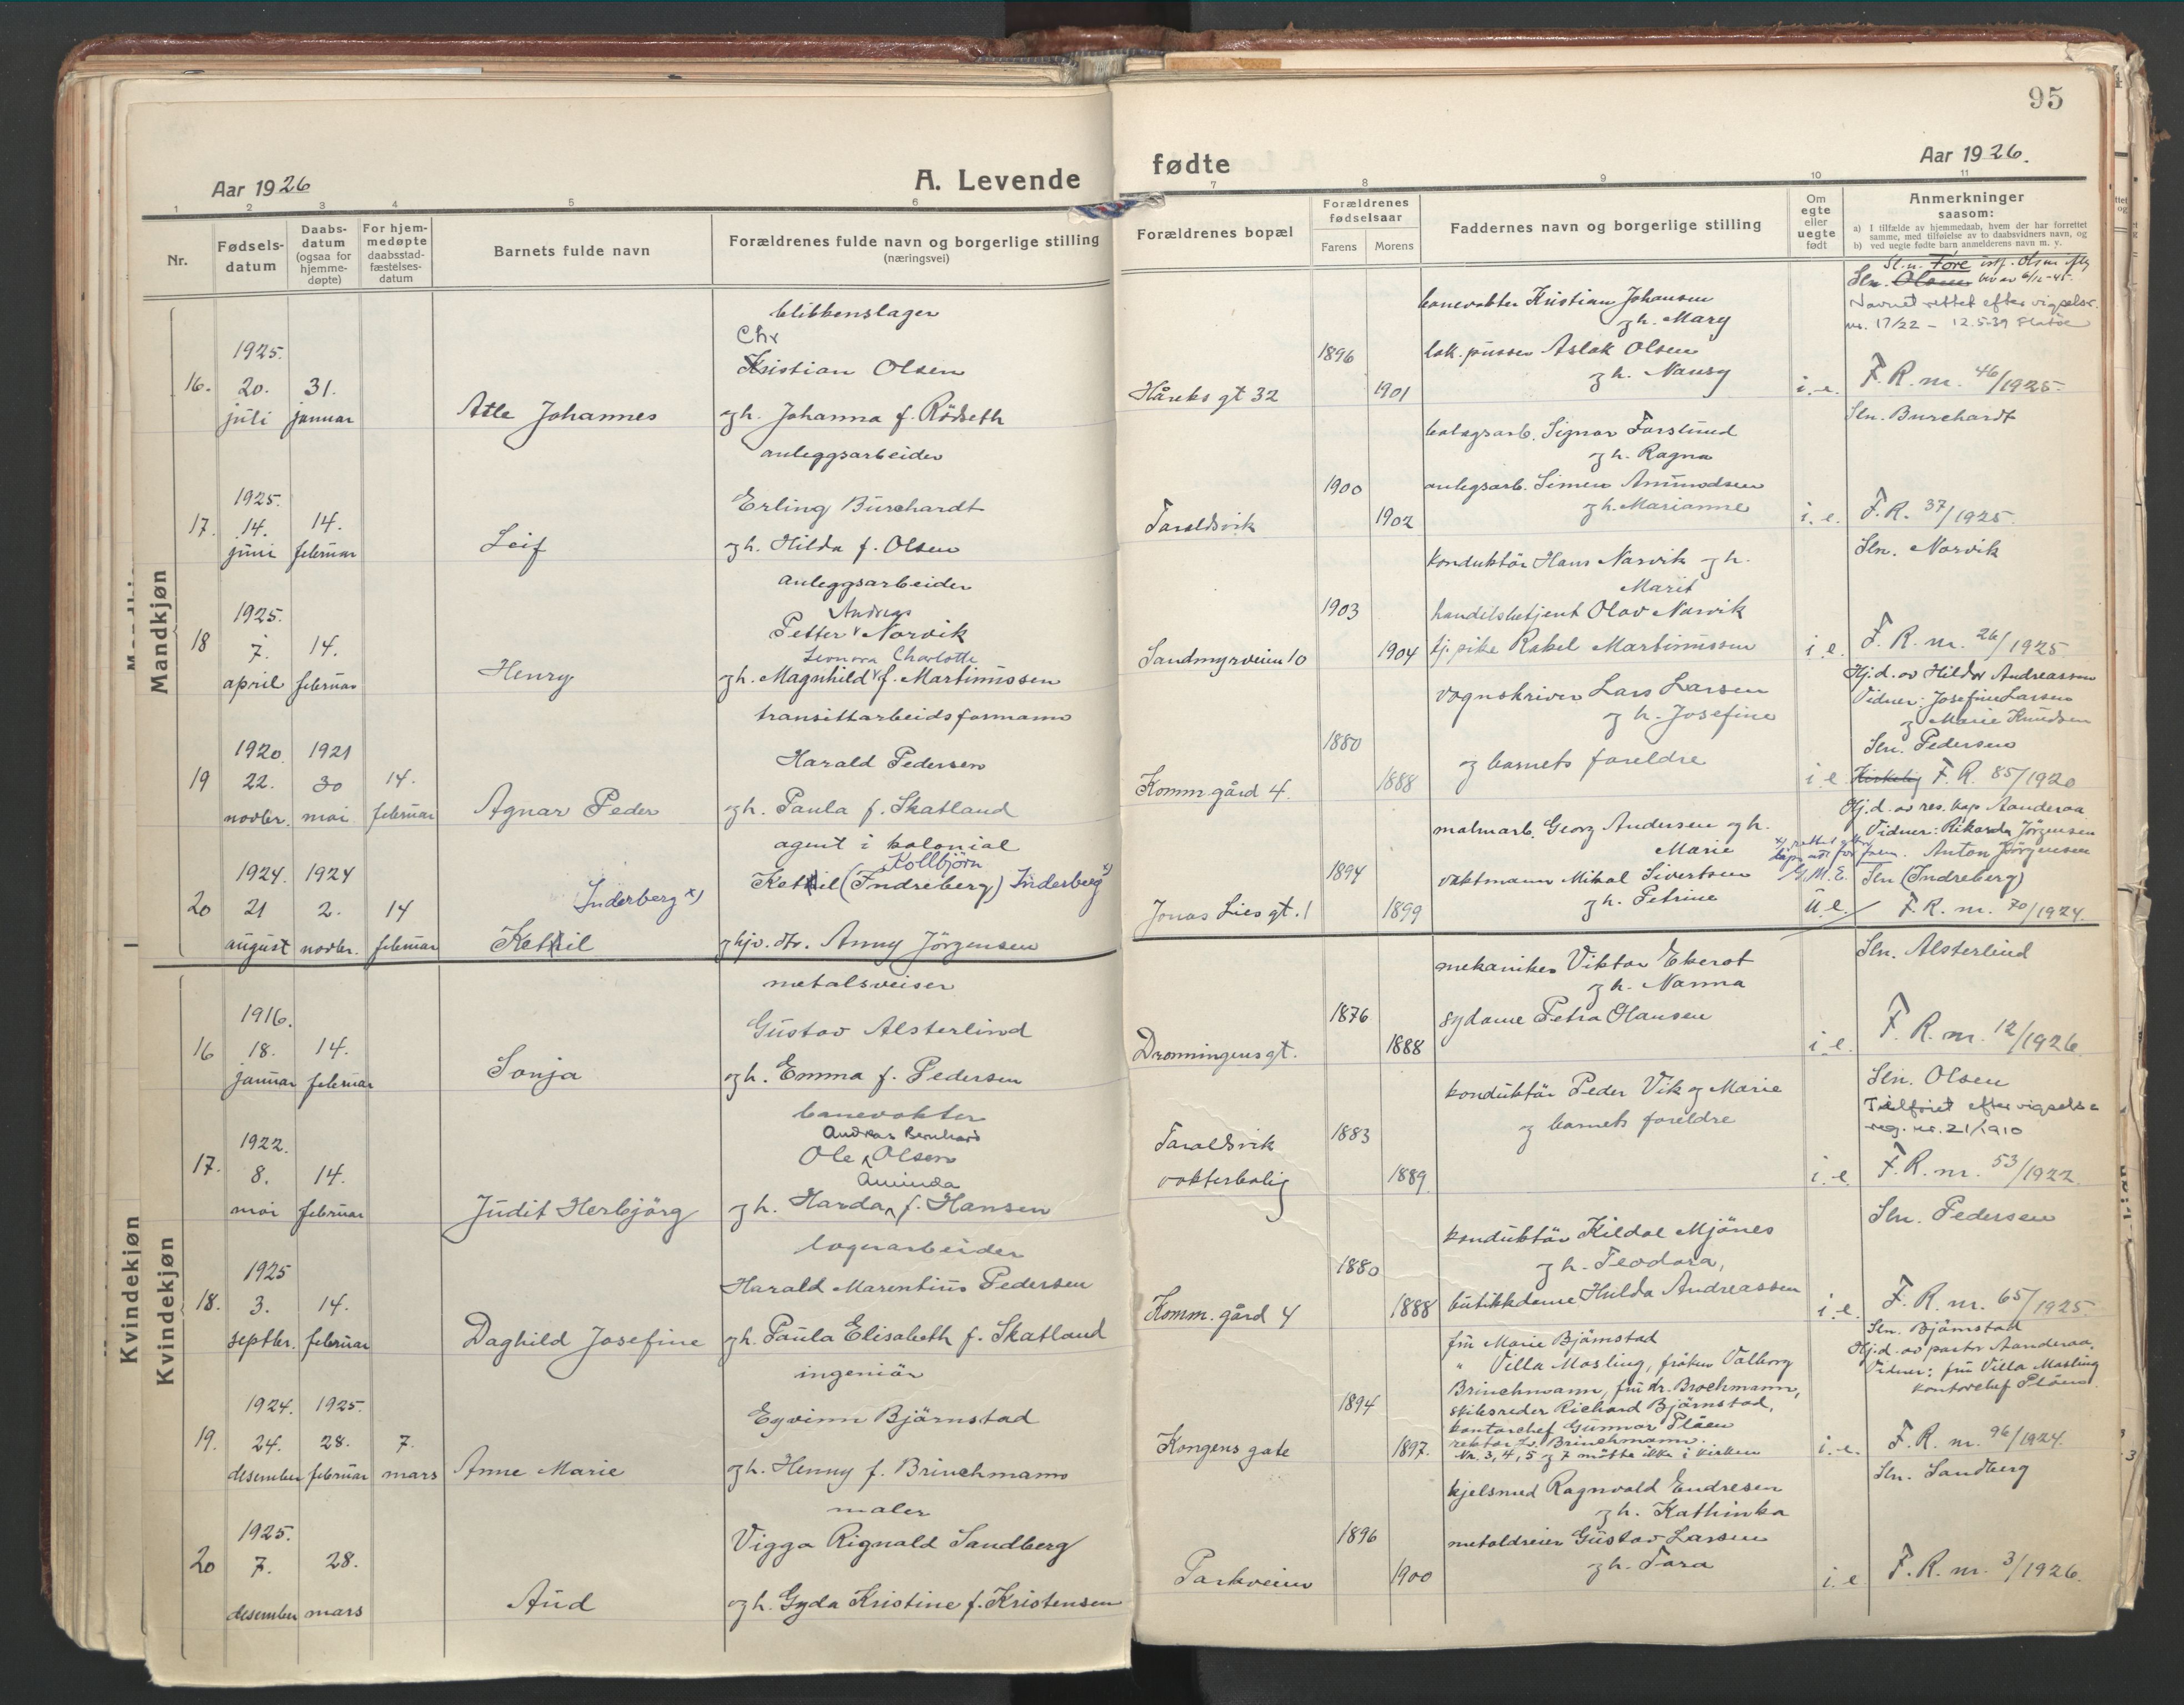 95
Aar 1926
A. Levende
fødte
Aar 1926.
1 2 3 4 5 6 7 8 9 10 11
Nr.
Fødsels-
datum
Daabs-
datum
(ogsaa for
hjemme-
døpte)
For hjem-
medøpte
daabsstad-
fæstelses-
datum
Barnets fulde navn
Forældrenes fulde navn og borgerlige stilling
(næringsvei)
Forældrenes bopæl
Forældrenes
fødselsaar
Farens Morens
Faddernes navn og borgerlige stilling
Om
egte
eller
uegte
født
Anmerkninger
saasom:
a) I tilfælde av hjemmedaab, hvem der har forrettet
samme, med tilføielse av to daabsvidners navn, og
b) ved uegte fødte barn anmelderens navn m. v.
Mandkjøn
16.
1925.
20.
juli
31.
januar
Atle Johannes
blikkenslager
Chr
Kristian Olsen
og h. Johanna f. Rödseth
Håreks gt 32
1896
1901
banevokter Kristian Johansen
og h. Mary
lok. pusser Aslak Olsen
og h. Nansy
i. e.
Sl.n. Tore
Sln. Olsen
Navnet rettet efter vigselsr.
nr. 17/22 - 12.5-39
F. R. nr. 46/1925.
17.
1925.
14.
juni
14.
februar
Leif
anleggsarbeider
Erling Burchardt
og h. Hilda f. Olsen
Taraldsvik
1900
1902
bolagsarb. Signar Forslund
og h. Ragna
anlegsarb. Simen Ammodsen
og h. Marianne
i. e.
Sln. Burchardt
F. R. 37/1925.
18
1925.
7.
april
14.
februar
Henry
anleggsarbeider
Andreas
Petter Norvik
Leonora Charlotte
og h. Magnhild f. Martinussen
Sandmyrveien 10
1903
1904
konduktör Hans Narvik og h.
Marit
handelsbetjent Olav Narvik
tj. pike Rakel Martinussen
i e.
Sln. Norvik
F. R. nr. 26/1925
19
1920.
22.
novbr.
1921
30
mai
14.
februar
Agnar Peder
transittarbeidsformann
Harald Pedersen
og h. Paula f. Skatland
Komm. gård 4.
1880
1888
vognskriver Lars Larsen
og h. Josefine
og barnets foreldre
i e.
Hj. d. av Hilda Andreassen
Vidner: Josefine Larsen
og Marie Knudsen
Sln. Pedersen
Kirkelig F. R. 85/1920
20
1924.
21
august
1924
2.
novbr.
14
februar
Inderberg x)
Kettil
agent i kolonial
Kolbjörn
Kettil (Indreberg) Inderberg x)
og hjv. dtr. Anny Jörgensen
Jonas Lies gt. 1
1894
1899
malmarb. Georg Andersen og h.
Marie
vaktmann Mikal Sivertsen
og h. Petrine
G.M.E.
u. e.
Hj. d. av res. kap Aanderaa
Vidner: Rikarda Jörgensen
Anton Jörgensen
Sln (Indreberg)
F. R. nr. 70/1924.
Kvindekjøn
Kvindekjøn
16
1916.
18.
januar
14.
februar
Sonja
metalsveiser
Gustav Alsterlind
og h. Emma f. Pedersen
Dronningens gt.
1876
1888
mekaniker Viktor Ekerot
og h. Nanna
sydame Petra Olausen
i. e.
Sln. Alsterlind
F. R. nr. 12/1926.
17.
1922.
8.
mai
14.
februar
Judit Herbjörg
banevokter
Andreas Bernhard
Ole Olsen
Aminda
og h. Harda f. Hansen
Taraldsvik
vokterbolig
1883
1889.
konduktör Peder Vik og Marie
og barnets foreldre
i. e.
Sln. Olsen
Tilföiet efter vigselsr
reg. nr. 21/1910
F. R. nr. 53/1922.
18.
1925
3.
septbr.
14.
februar
Daghild Josefine
lagerarbeider
Harald Marentius Pedersen
og h. Paula Elisabeth f. Skatland
Komm. gård 4
1880
1888
konduktör Kildal Mjönes
og h. Teodora,
butikkdame Hulda Andreassen
i. e.
Sln. Pedersen
F. R. nr. 65/1925
19.
1924.
24.
desember
1925.
28.
februar
7.
mars
Anne Marie
ingeniör
Eyvinn Björnstad
og h. Henny f. Brinchmann
Kongens gate
1894
1897.
fru Marie Björnstad
" Villa Mosling, fröken Valborg
Brinchmann, fru dr. Brochmann,
skibsreder Richard Björnstad,
kontorchef Gunnar Plåen
rektor Brinchmann.
Nr. 3, 4, 5 og 7 mötte ikke i kirken
i. e.
Sln. Björnstad
Hj. d. av pastor Aanderaa.
Vidner: fru Villa Mosling
kontorchef Plåen.
F. R. nr. 96/1924.
20
1925.
7.
desember
28.
mars
Aud
maler
Viggo Rignald Sandberg
og h. Gyda Kristine f. Kristensen
Parkveien
1896
1900
kjelsmed Ragnvald Endresen
og h. Kathinka
metaldreier Gustav Larsen
og h. Tora
i. e
Sln. Sandberg
F. R. nr. 3/1926.